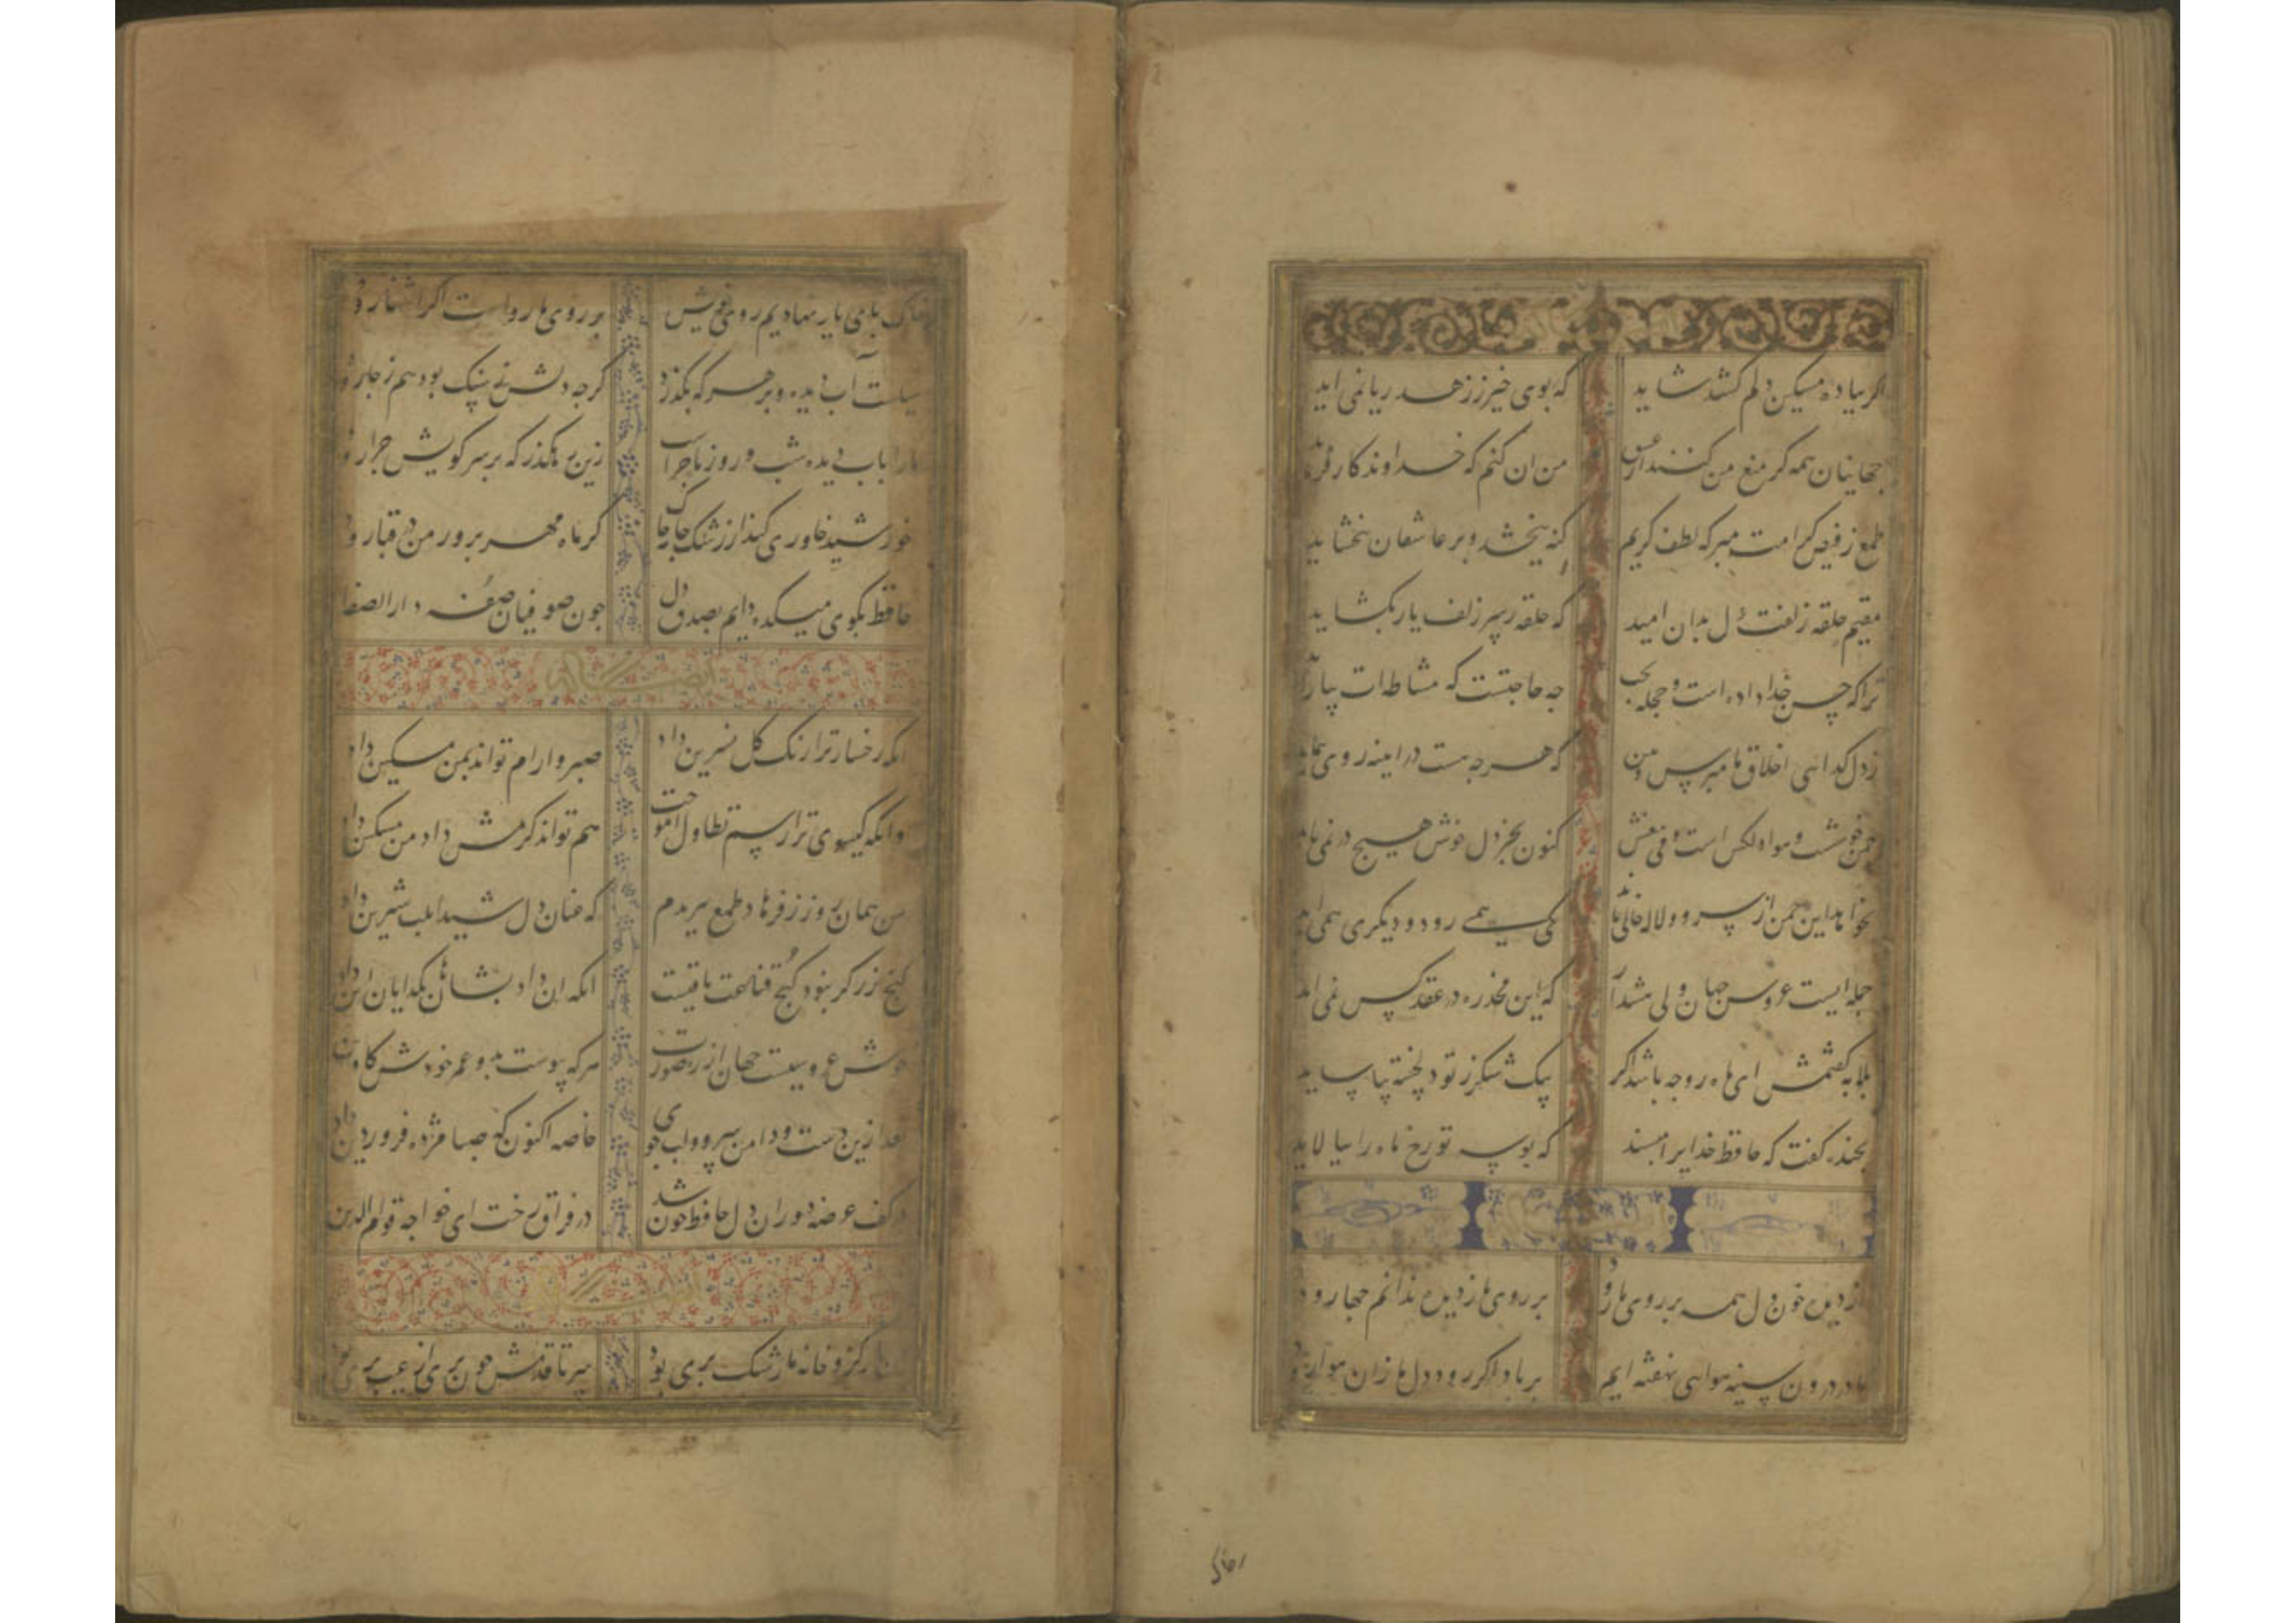 اکر بباده مسکین دلم کشد شاید که بوی خیر ز زهد ریا نمی اید
جهانیان همه کر منع من کنند از عشق من ان کنم که خداوندکار فرماید
طمع ز فیض کرامت مبر که لطف کریم کنه ببخشد و بر عاشقان ببخشاید
مقیم حلقه زلفت دل بدان امید که حلقه ز سر زلف یار بکشاید
ترا که حسن خداداده است و حجله بخت چه حاجتست که مشاطه ات بیاراید
ز دل کدایی اخلاق ما مپرس و ببین که هر چه هست در اینه روی نماید
چمن خوشست و هوا دلکش است و می بیغش کنون بجز دل خوش هیچ در نمی باید
نخواهد این چمن از سرو و لاله خالی ماند یکی همی رود و دیکری همی اید
جمله ایست عروس جهان ولی هشدار که این مخدره در عقد کس نمی اید
بلابه کفتمش ای ماه رو چه باشد اکر بیک شکر ز تو دلخسته بیاساید
بخنده کفت که حافظ خدایرا مپسند که بوسه تو رخ ماه را بیالاید
از دیده خون دل همه بر روی ما رود بر روی ما ز دیده ندانم چها رود
ما در درون سینه هوایی نهفته ایم بر باد اکر رود دل ما زان هوا رود
رخاک
بر خاک پای یار نهادیم روی خویش بر روی ما رواست اکر اشنا رود
سیلست آب دیده و بر هر که بکذرد کرچه دلش نه سنک بود هم ز جا رود
ما را باب دیده شب و روز ماجراست زین رهکذر که بر سر کویش چرا رود
خورشید خاوری کند از رشک جامه چاک کر ماه مهر پرور من در قبا رود
حافظ بکوی میکده دایم بصدق دل چون صوفیان صفه دار الصفا
انکه رخسار ترا رنک کل نسرین داد صبر و ارام تواند بمن مسکین داد
وانکه کیسوی ترا رسم تطاول اموخت هم تواند کرمش داد من مسکین داد
من همان روز ز فرهاد طمع ببریدم که عنان دل شیدا بلب شیرین داد
کنج زر کر نبود کنج قناعت باقیست انکه ان داد بشاهان بکدایان این داد
خوش عروسیست جهان از ره صورت هرکه پیوست بدو عمر خودش کاوین
بعد ازین دست و دامن سرو و لب جوی خاصه اکنون که صبا مژده فروردین داد
در کف غصه دوران دل حافظ خون شد در فراق رخت ای خواجه قوام الدین
یار کزو خانه ما رشک پری بود سر تا قدمش چون پری از عیب بری بود